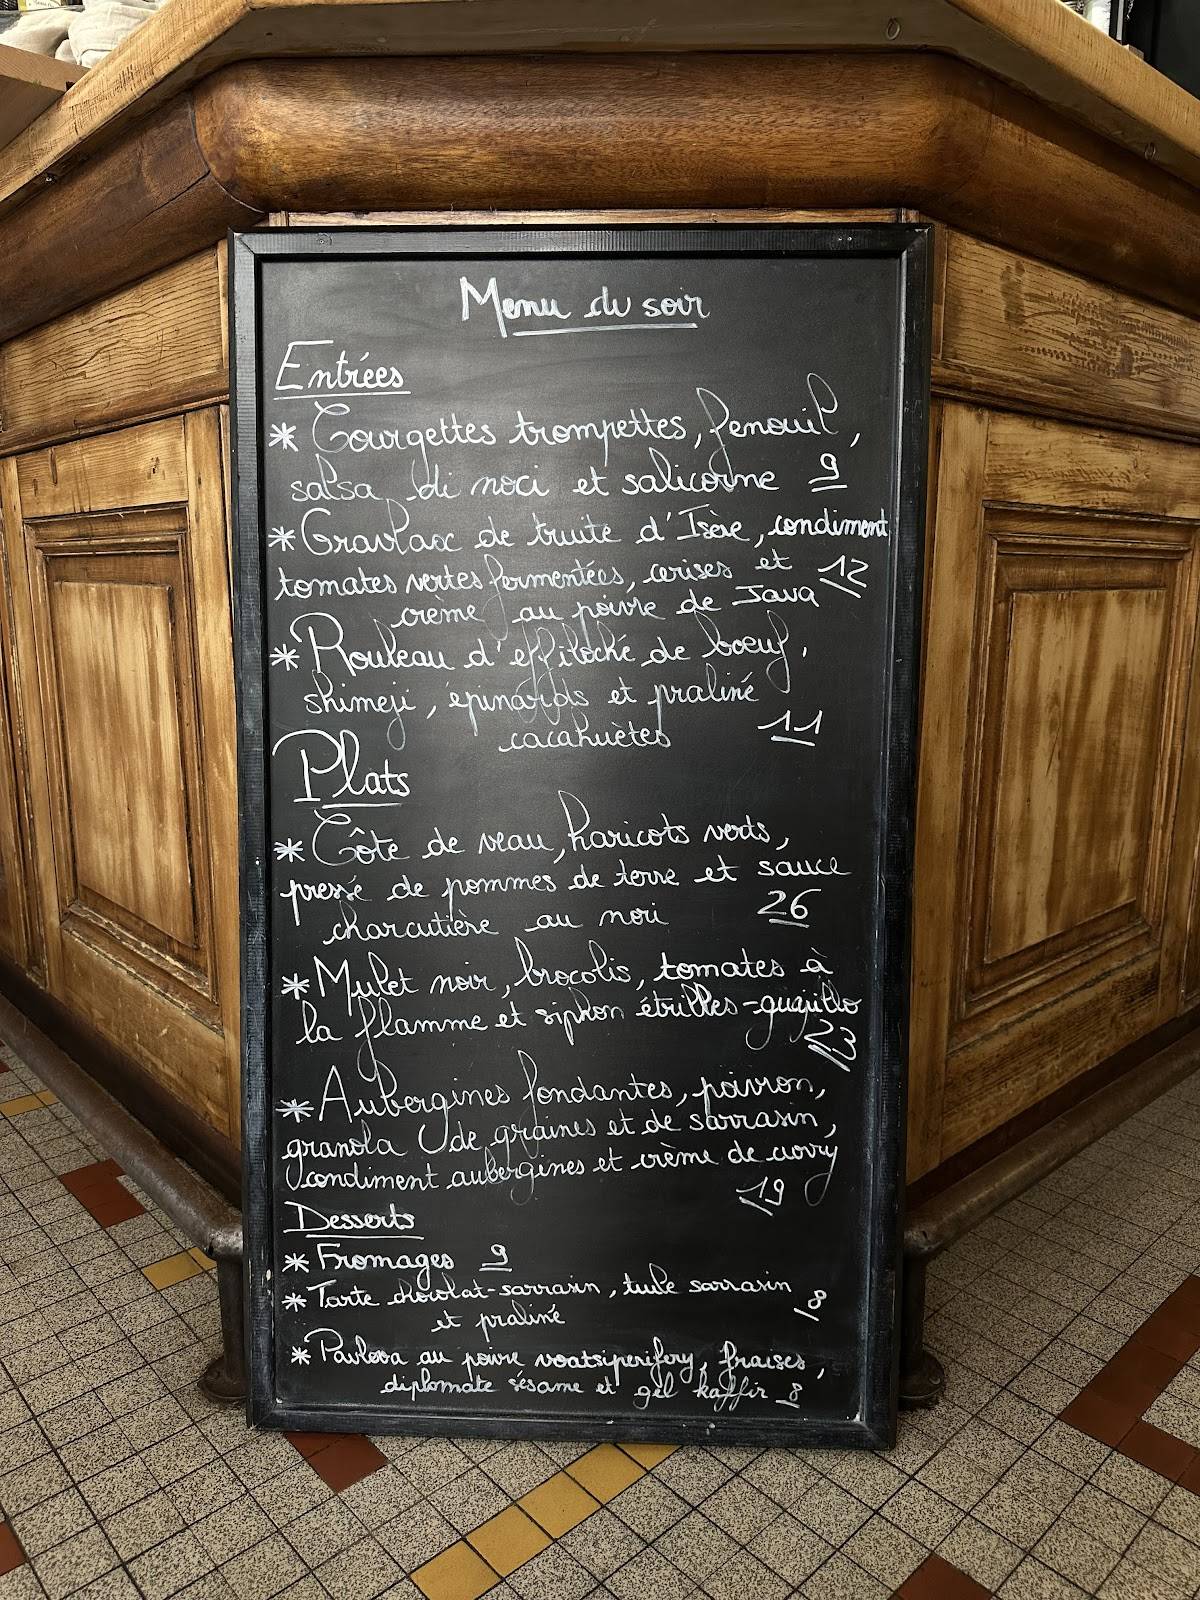 Menu du soir
Entrées
* Courgettes trompettes, fenouil,
salsa di noci et salicorne 9
* Gravlax de truite d'Isère, condiment
tomates vertes fermentées, cerises et 12
crème au poivre de Java
* Rouleau d'effiloché de boeuf,
shimeji, épinards et praliné
cacahuètes 11
Plats
* Côte de veau, haricots verts,
pressé de pommes de terre et sauce
charcutière au nori 26
* Mulet noir, brocolis, tomates à
la flamme et siphon étrilles-guajillo
23
* Aubergines fondantes, poivron,
granola de graines et de sarrasin,
condiment aubergines et crème de curry
19
Desserts
* Fromages 9
* Tarte chocolat-sarrasin, tuile sarrasin 8
et praliné
* Pavlova au poivre voatsiperifery, fraises,
diplomate sésame et gel kaffir 8